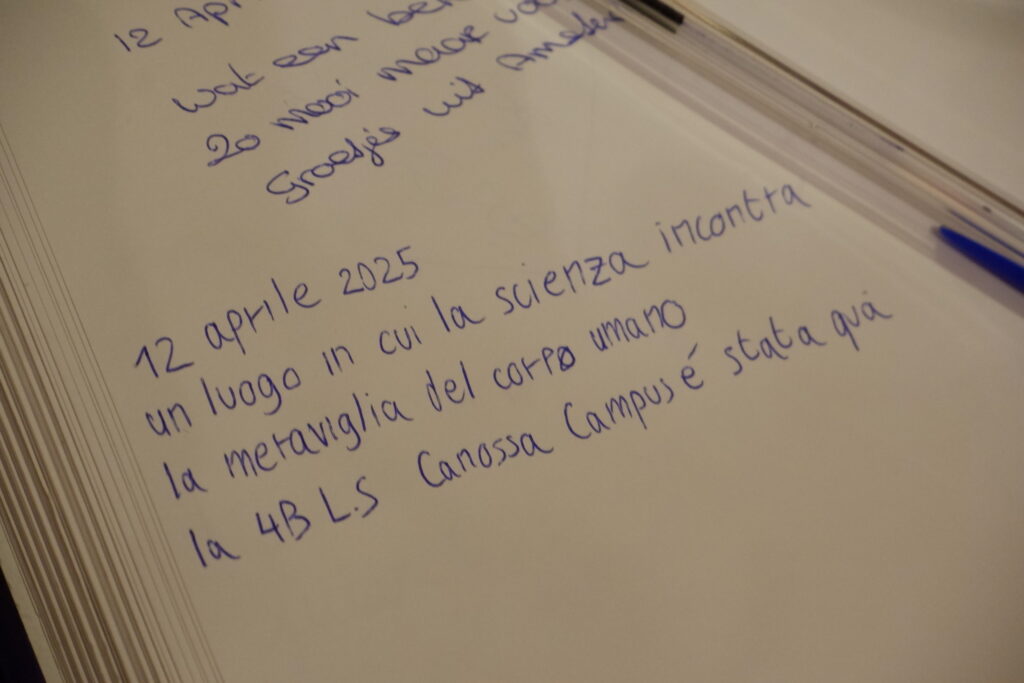 12 Apr
wat een
zo mooi maar
Groetjes uit
12 aprile 2025
un luogo in cui la scienza incontra
la meraviglia del corpo umano
la 4B L.S Canossa Campus é stata quà